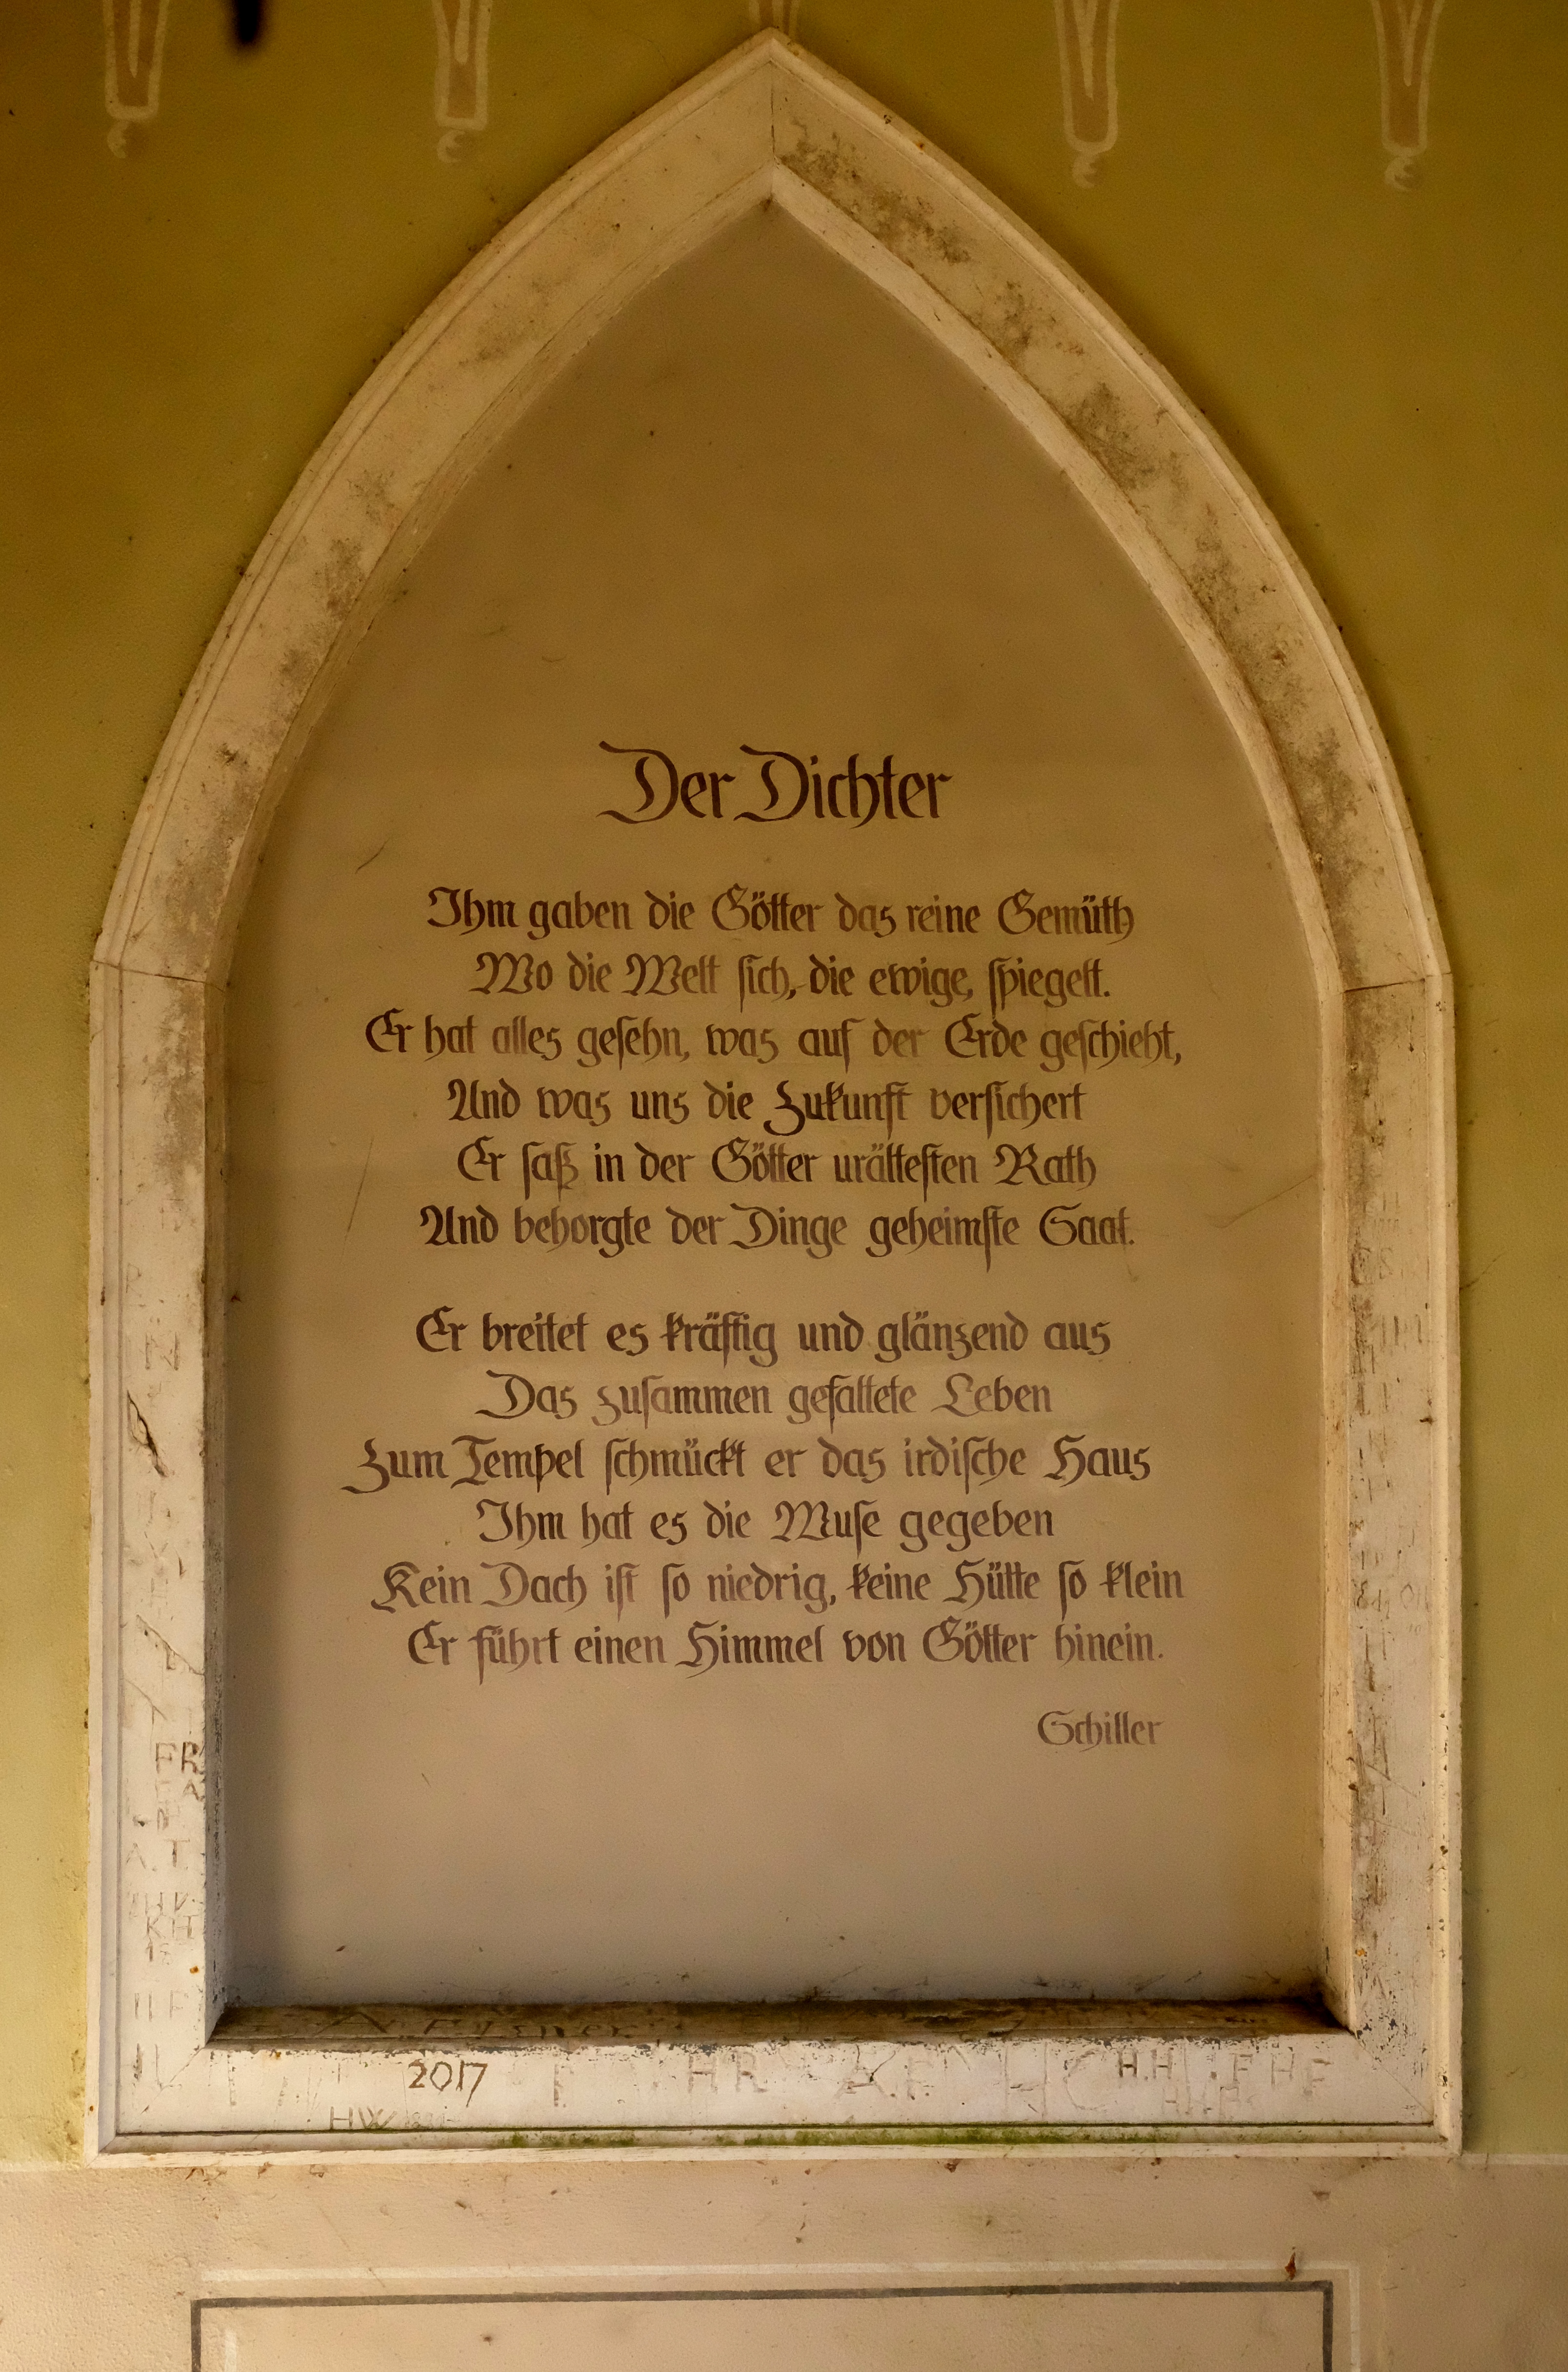 Der Dichter
Ihm gaben die Götter das reine Gemüth
Wo die Welt sich, die ewige, spiegelt.
Er hat alles gesehn, was auf der Erde geschieht,
And was uns die Zukunft versichert
Er saß in der Götter urältesten Rath
And behorgte der Dinge geheimste Saat.
Er breitet es kräftig und glänzend aus
Das zusammen gefaltete Leben
Zum Tempel schmückt er das irdische Haus
Ihm hat es die Muse gegeben
Kein Dach ist so niedrig, keine Hütte so klein
Er führt einen Himmel von Götter hinein.
Schiller
FR
A.T.
KH
2017
HR
A.F.
H.H.
HW